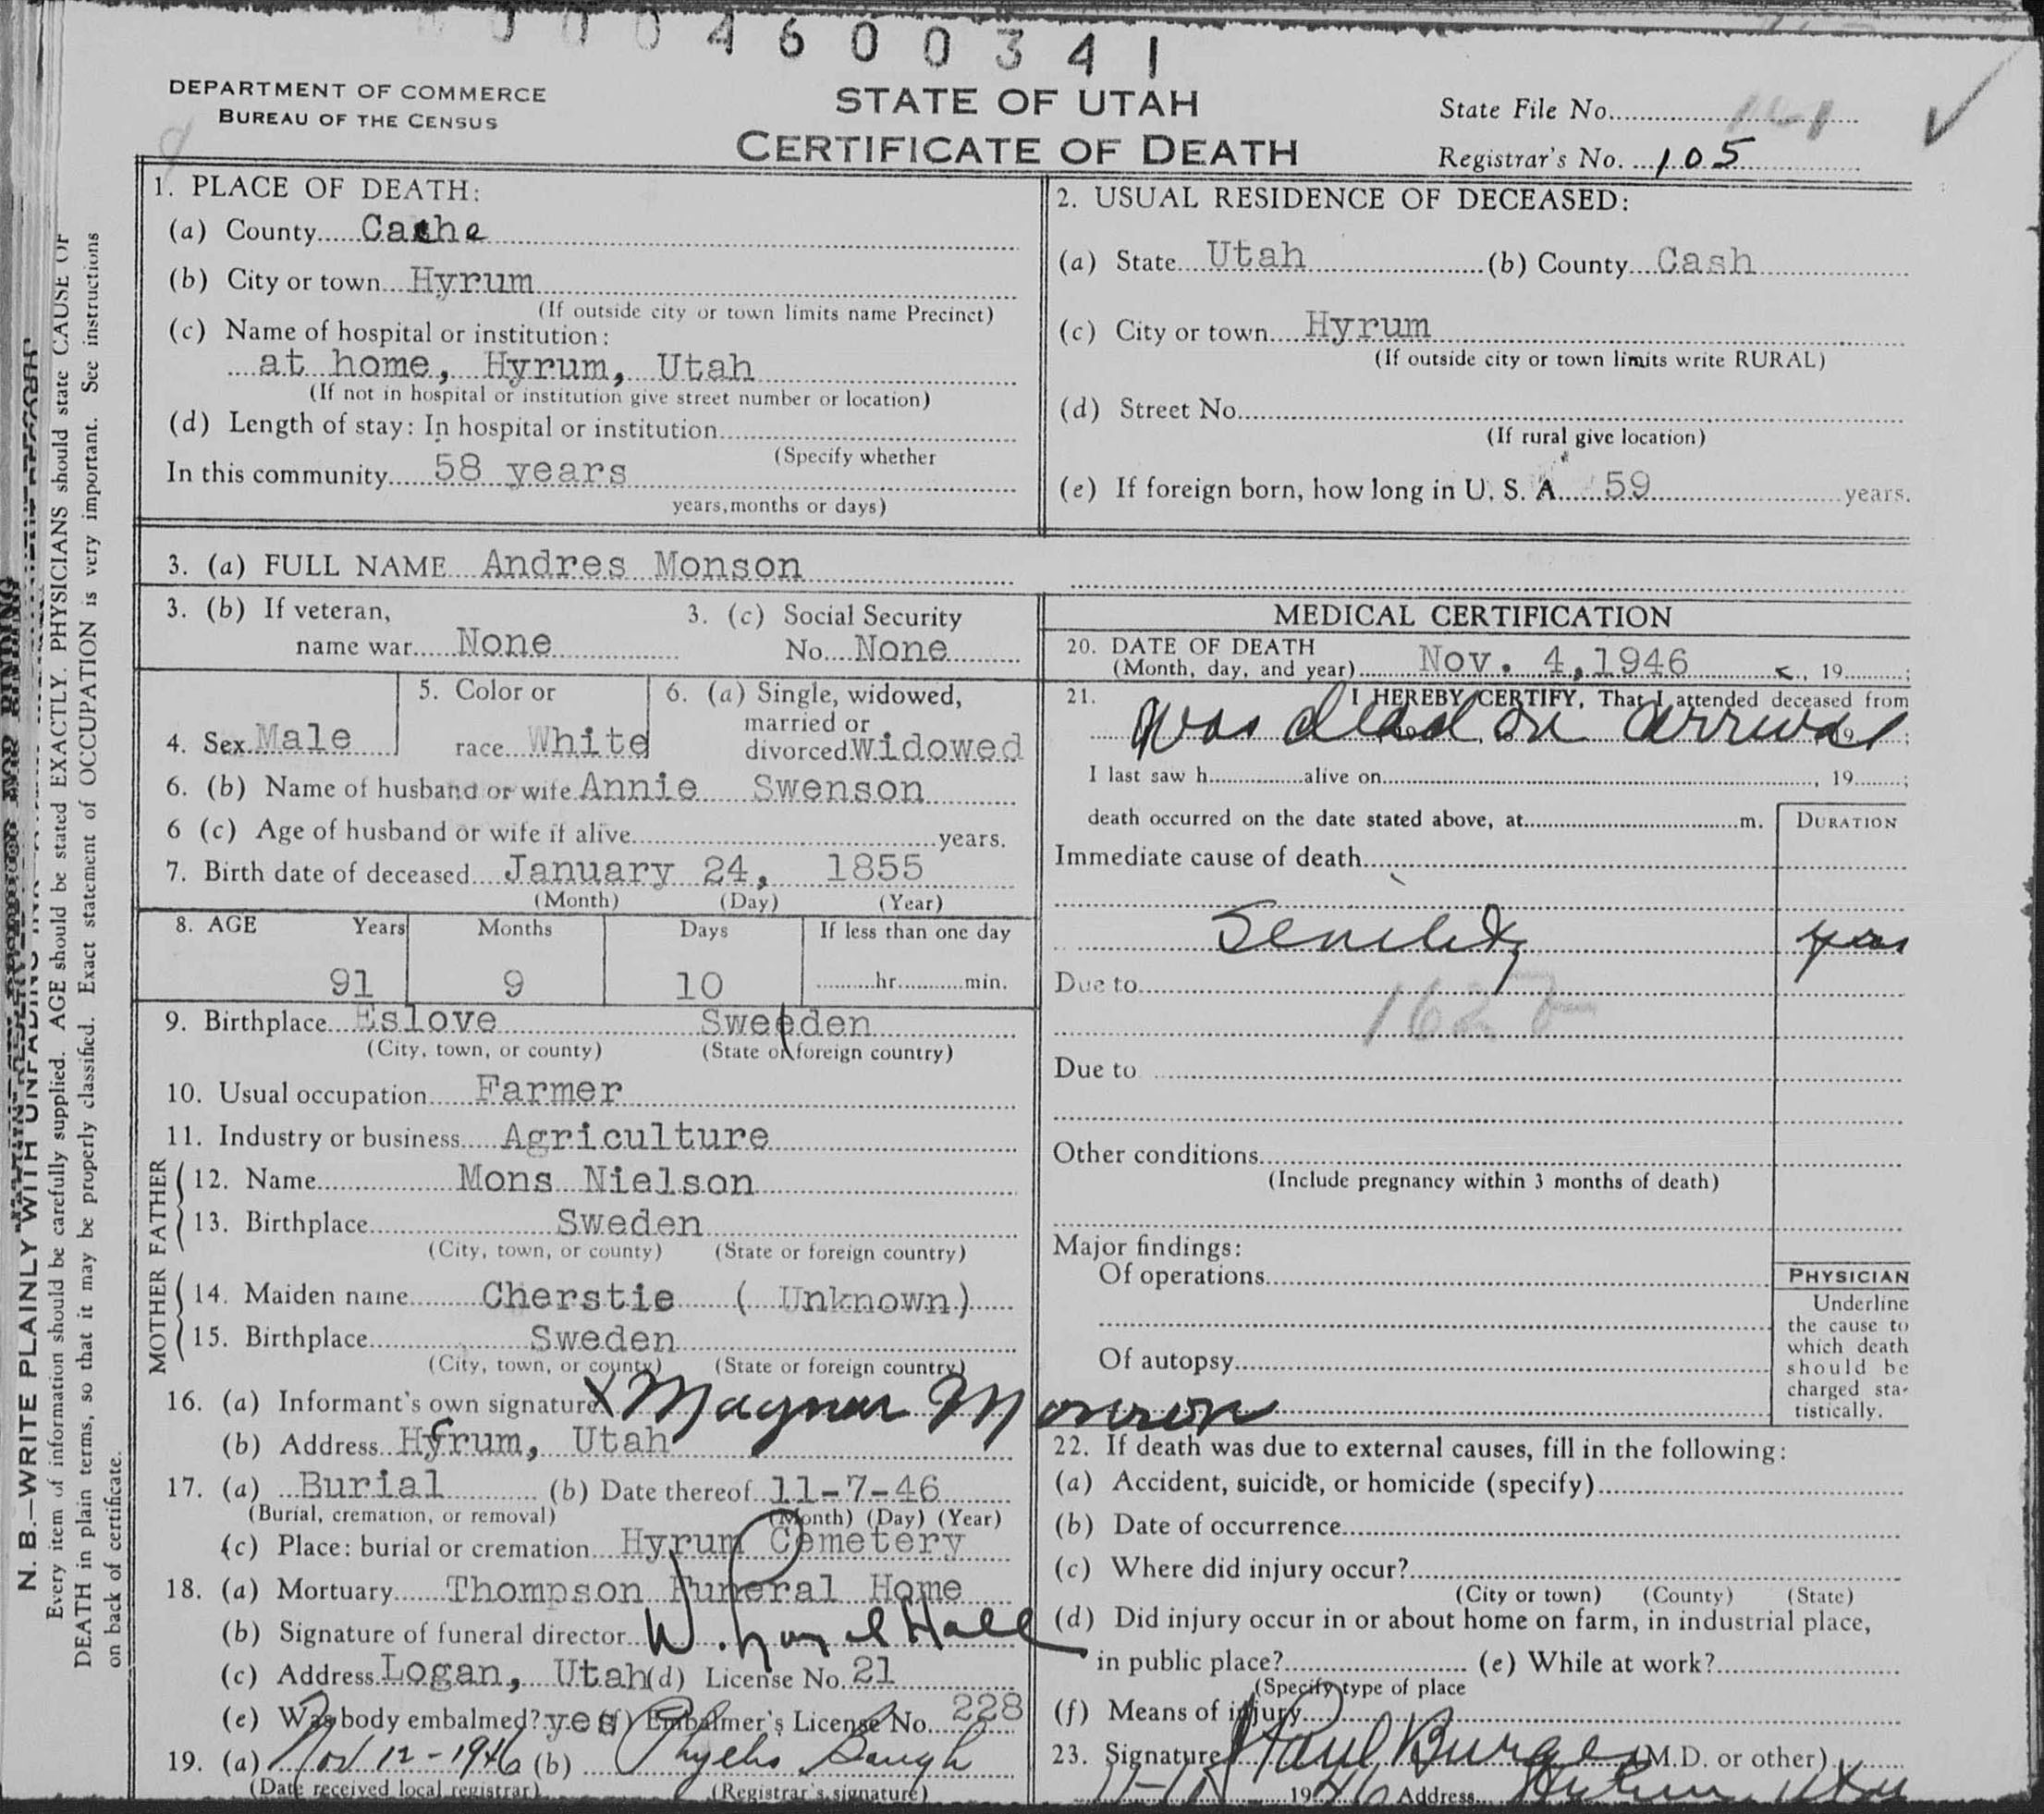 4600341
DEPARTMENT OF COMMERCE
BUREAU OF THE CENSUS
STATE OF UTAH
CERTIFICATE OF DEATH
State File No.
Registrar's No. 105
1. PLACE OF DEATH:
(a) County Cache
(b) City or town Hyrum
(If outside city or town limits name Precinct)
(c) Name of hospital or institution:
at home, Hyrum, Utah
(If not in hospital or institution give street number or location)
(d) Length of stay: In hospital or institution
(Specify whether
In this community 58 years
years, months or days)
2. USUAL RESIDENCE OF DECEASED:
(a) State Utah (b) County Cash
(c) City or town Hyrum
(If outside city or town limits write RURAL)
(d) Street No.
(If rural give location)
(e) If foreign born, how long in U. S. A. 59 years.
3. (a) FULL NAME Andres Monson
3. (b) If veteran,
name war None
3. (c) Social Security
No. None
4. Sex Male
5. Color or
race White
6. (a) Single, widowed,
married or
divorced widowed
6. (b) Name of husband or wife Annie Swenson
6 (c) Age of husband or wife if alive years.
7. Birth date of deceased January 24, 1855
(Month) (Day) (Year)
8. AGE Years Months Days If less than one day
91 9 10 hr. min.
9. Birthplace Eslove Sweden
(City, town, or county) (State or foreign country)
10. Usual occupation Farmer
11. Industry or business Agriculture
FATHER
12. Name Mons Nielson
13. Birthplace Sweden
(City, town, or county) (State or foreign country)
MOTHER
14. Maiden name Cherstie ( Unknown )
15. Birthplace Sweden
(City, town, or county) (State or foreign country)
16. (a) Informant's own signature X Magnus Monson
(b) Address Hyrum, Utah
17. (a) Burial (b) Date thereof 11-7-46
(Burial, cremation, or removal) (Month) (Day) (Year)
(c) Place: burial or cremation Hyrum Cemetery
18. (a) Mortuary Thompson Funeral Home
(b) Signature of funeral director W. Hall
(c) Address Logan, Utah (d) License No. 21
(e) Was body embalmed? yes (f) Embalmer's License No. 228
19. (a) Nov 12-1946 (b) Phyllis Baugh
(Date received local registrar) (Registrar's signature)
MEDICAL CERTIFICATION
20. DATE OF DEATH
(Month, day, and year) Nov. 4, 1946, 19 ;
21. I HEREBY CERTIFY, That I attended deceased from
was dead on arrival 19 ;
I last saw h alive on , 19 ;
death occurred on the date stated above, at m.
DURATION
Immediate cause of death
Senility yrs
Due to
162
Due to
Other conditions
(Include pregnancy within 3 months of death)
Major findings:
Of operations
Of autopsy
PHYSICIAN
Underline
the cause to
which death
should be
charged sta-
tistically.
22. If death was due to external causes, fill in the following:
(a) Accident, suicide, or homicide (specify)
(b) Date of occurrence
(c) Where did injury occur?
(City or town) (County) (State)
(d) Did injury occur in or about home on farm, in industrial place,
in public place? (e) While at work?
(Specify type of place
(f) Means of injury
23. Signature Paul Burge (M.D. or other)
1946 Address Hyrum, Utah
N. B.—WRITE PLAINLY WITH UNFADING INK
Every item of information should be carefully supplied. AGE should be stated EXACTLY. PHYSICIANS should state CAUSE OF
DEATH in plain terms, so that it may be properly classified. Exact statement of OCCUPATION is very important. See instructions
on back of certificate.